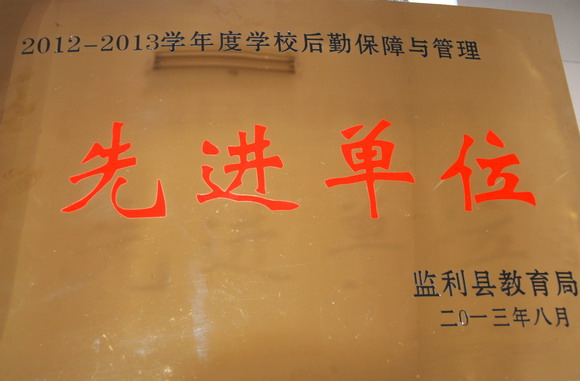 2012-2013学年度学校后勤保障与管理
先进单位
监利县教育局
二0一三年八月